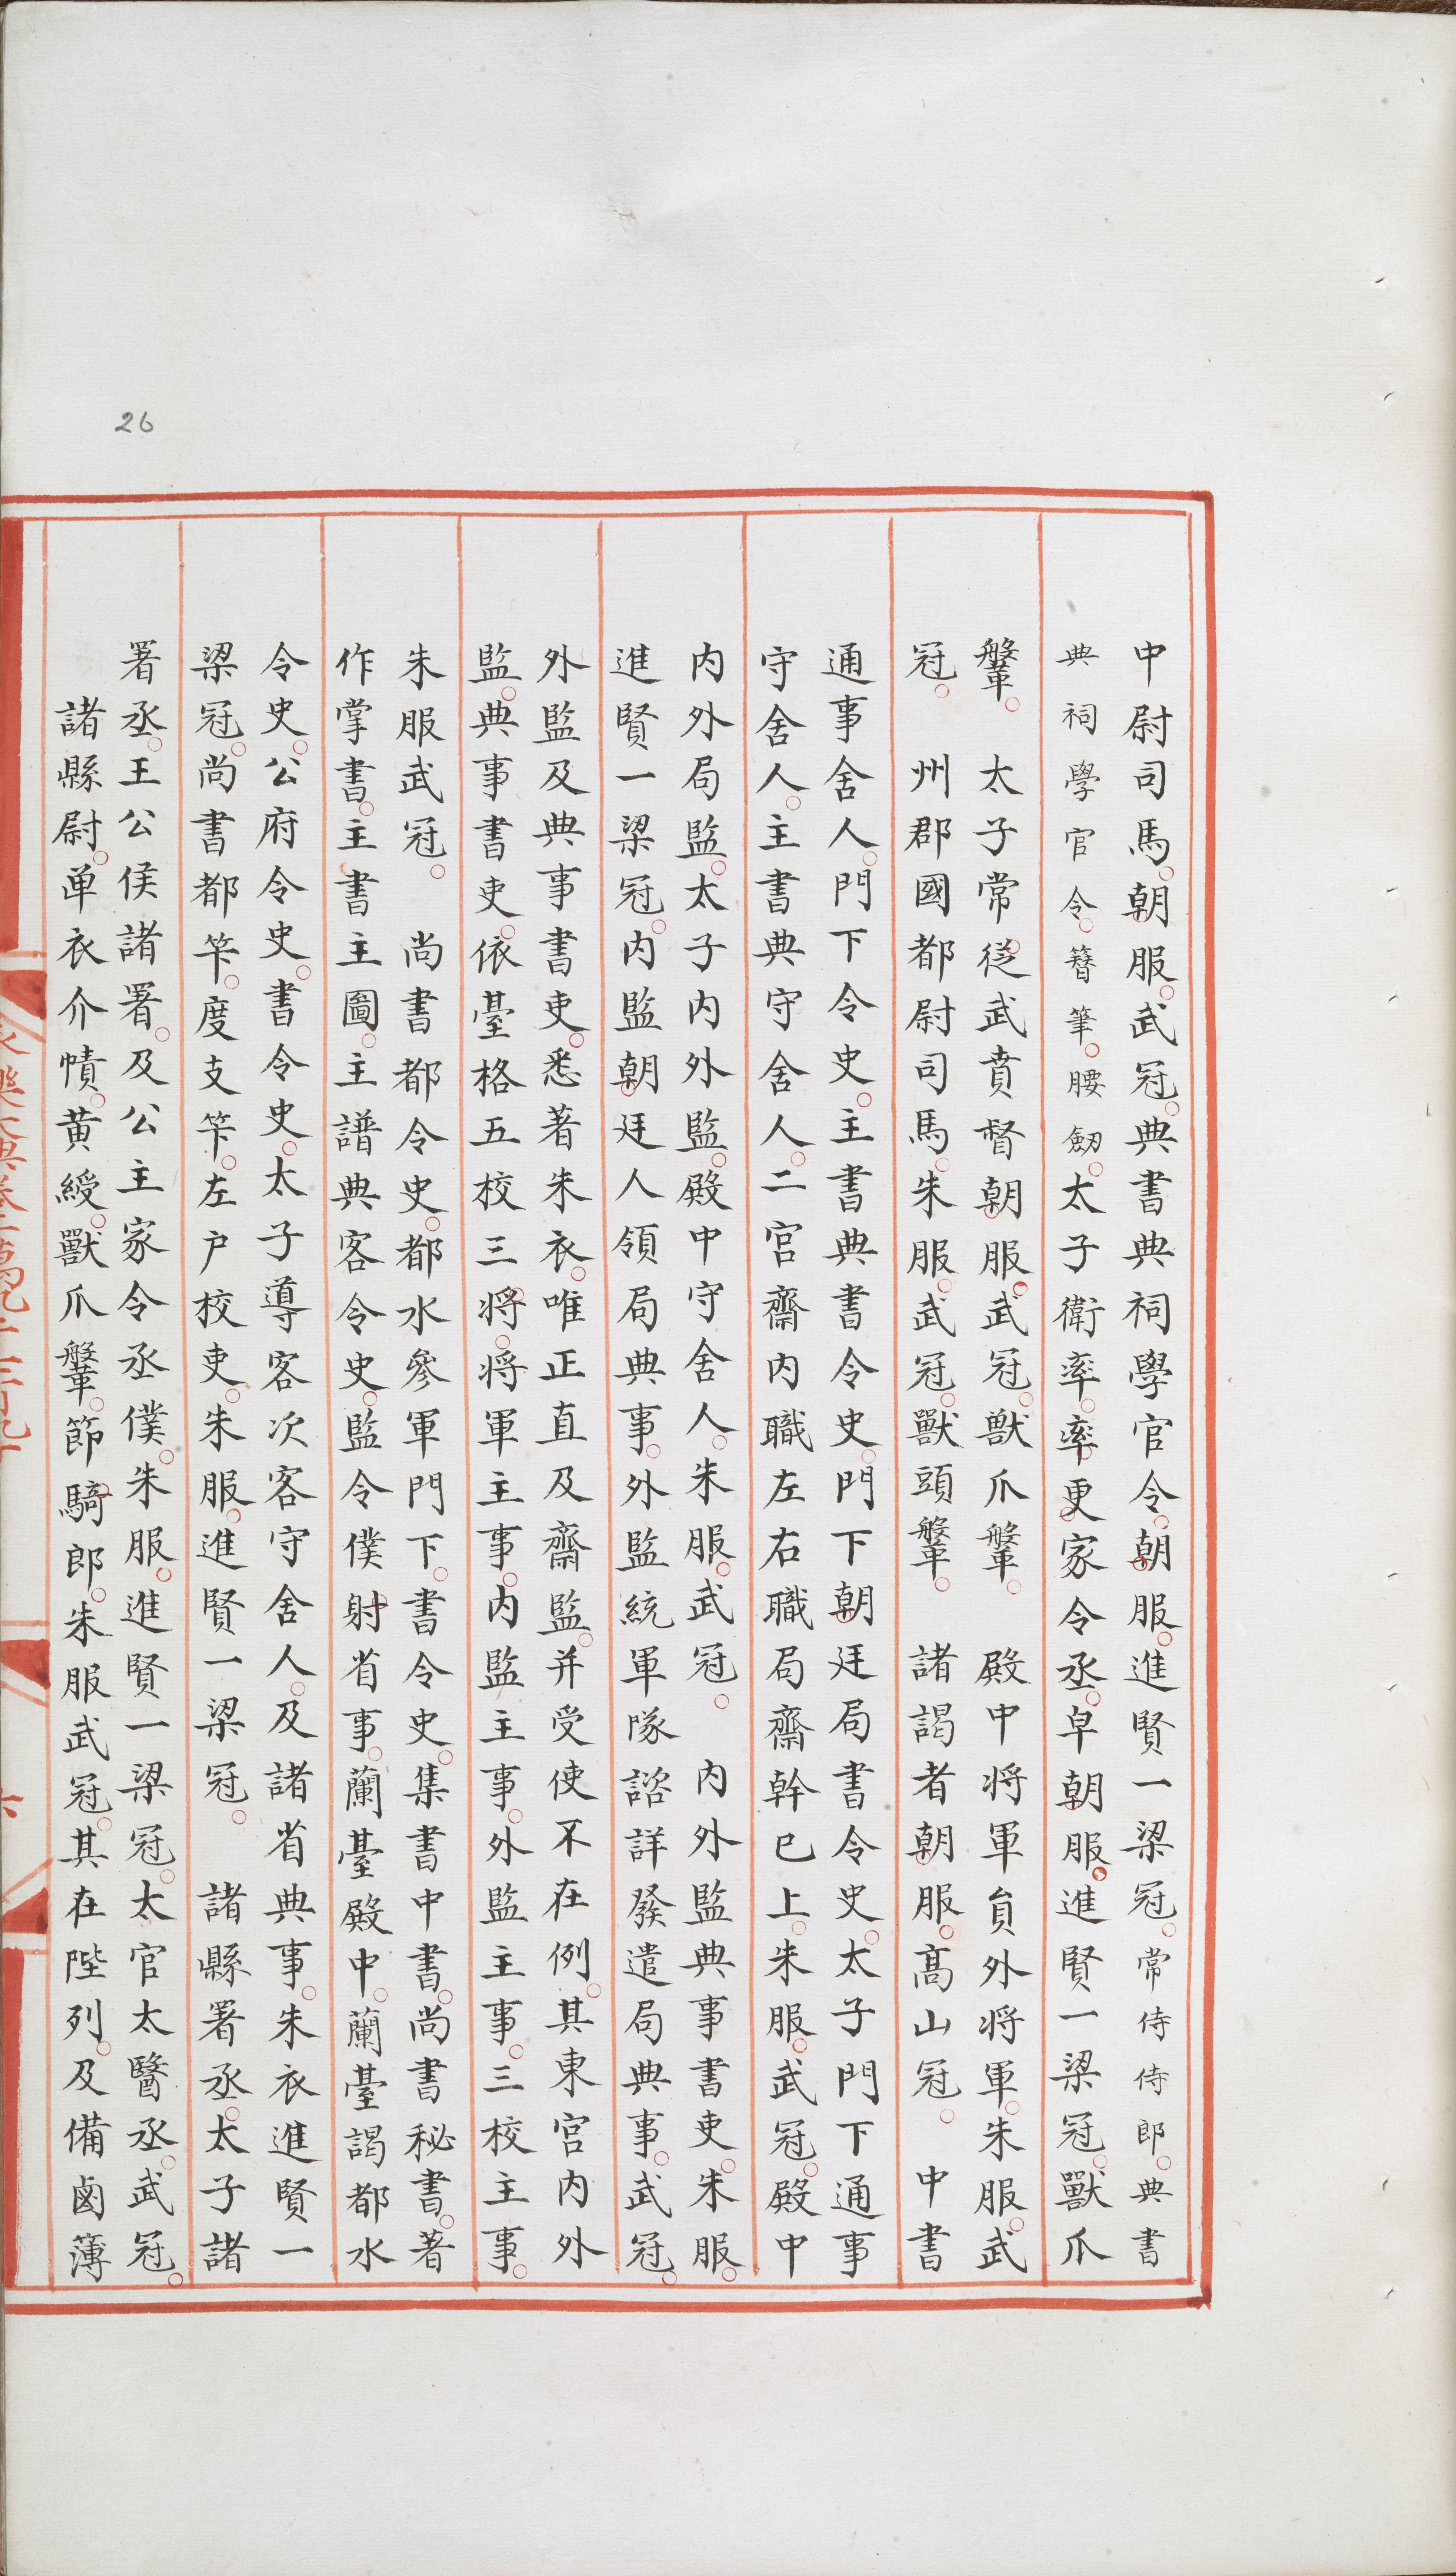 26
中尉司馬朝服武冠典書典祠學官令朝服進賢一梁冠常侍侍郎典書
典祠學官令簪筆腰劒太子衛率率更家令丞皁朝服進賢一梁冠獸爪
鞶　太子常從武賁督朝服武冠獸爪鞶　殿中將軍貟外將軍朱服武
冠　州郡國都尉司馬朱服武冠獸頭鞶　諸謁者朝服髙山冠　中書
通事舍人門下令史主書典書令史門下朝廷局書令史太子門下通事
守舍人主書典守舍人二宫齋内職左右職局齋幹已上朱服武冠殿中
内外局監太子内外監殿中守舍人朱服武冠　内外監典事書吏朱服
進賢一梁冠内監朝廷人領局典事外監統軍隊諮詳發遣局典事武冠
外監及典事書吏悉著朱衣唯正直及齋監并受使不在例其東宫内外
監典事書吏依臺格五校三將將軍主事内監主事外監主事三校主事
朱服武冠　尚書都令史都水參軍門下書令史集書中書尚書秘書著
作掌書主書主圖主譜典客令史監令僕射省事蘭臺殿中蘭臺謁都水
令史公府令史書令史太子導客次客守舍人及諸省典事朱衣進賢一
梁冠尚書都筭度支筭左户校吏朱服進賢一梁冠　諸縣署丞太子諸
署丞王公侯諸署及公主家令丞僕朱服進賢一梁冠太官太醫丞武冠
諸縣尉单衣介幘黄綬獸爪鞶節騎郎朱服武冠其在陛列及備鹵簿